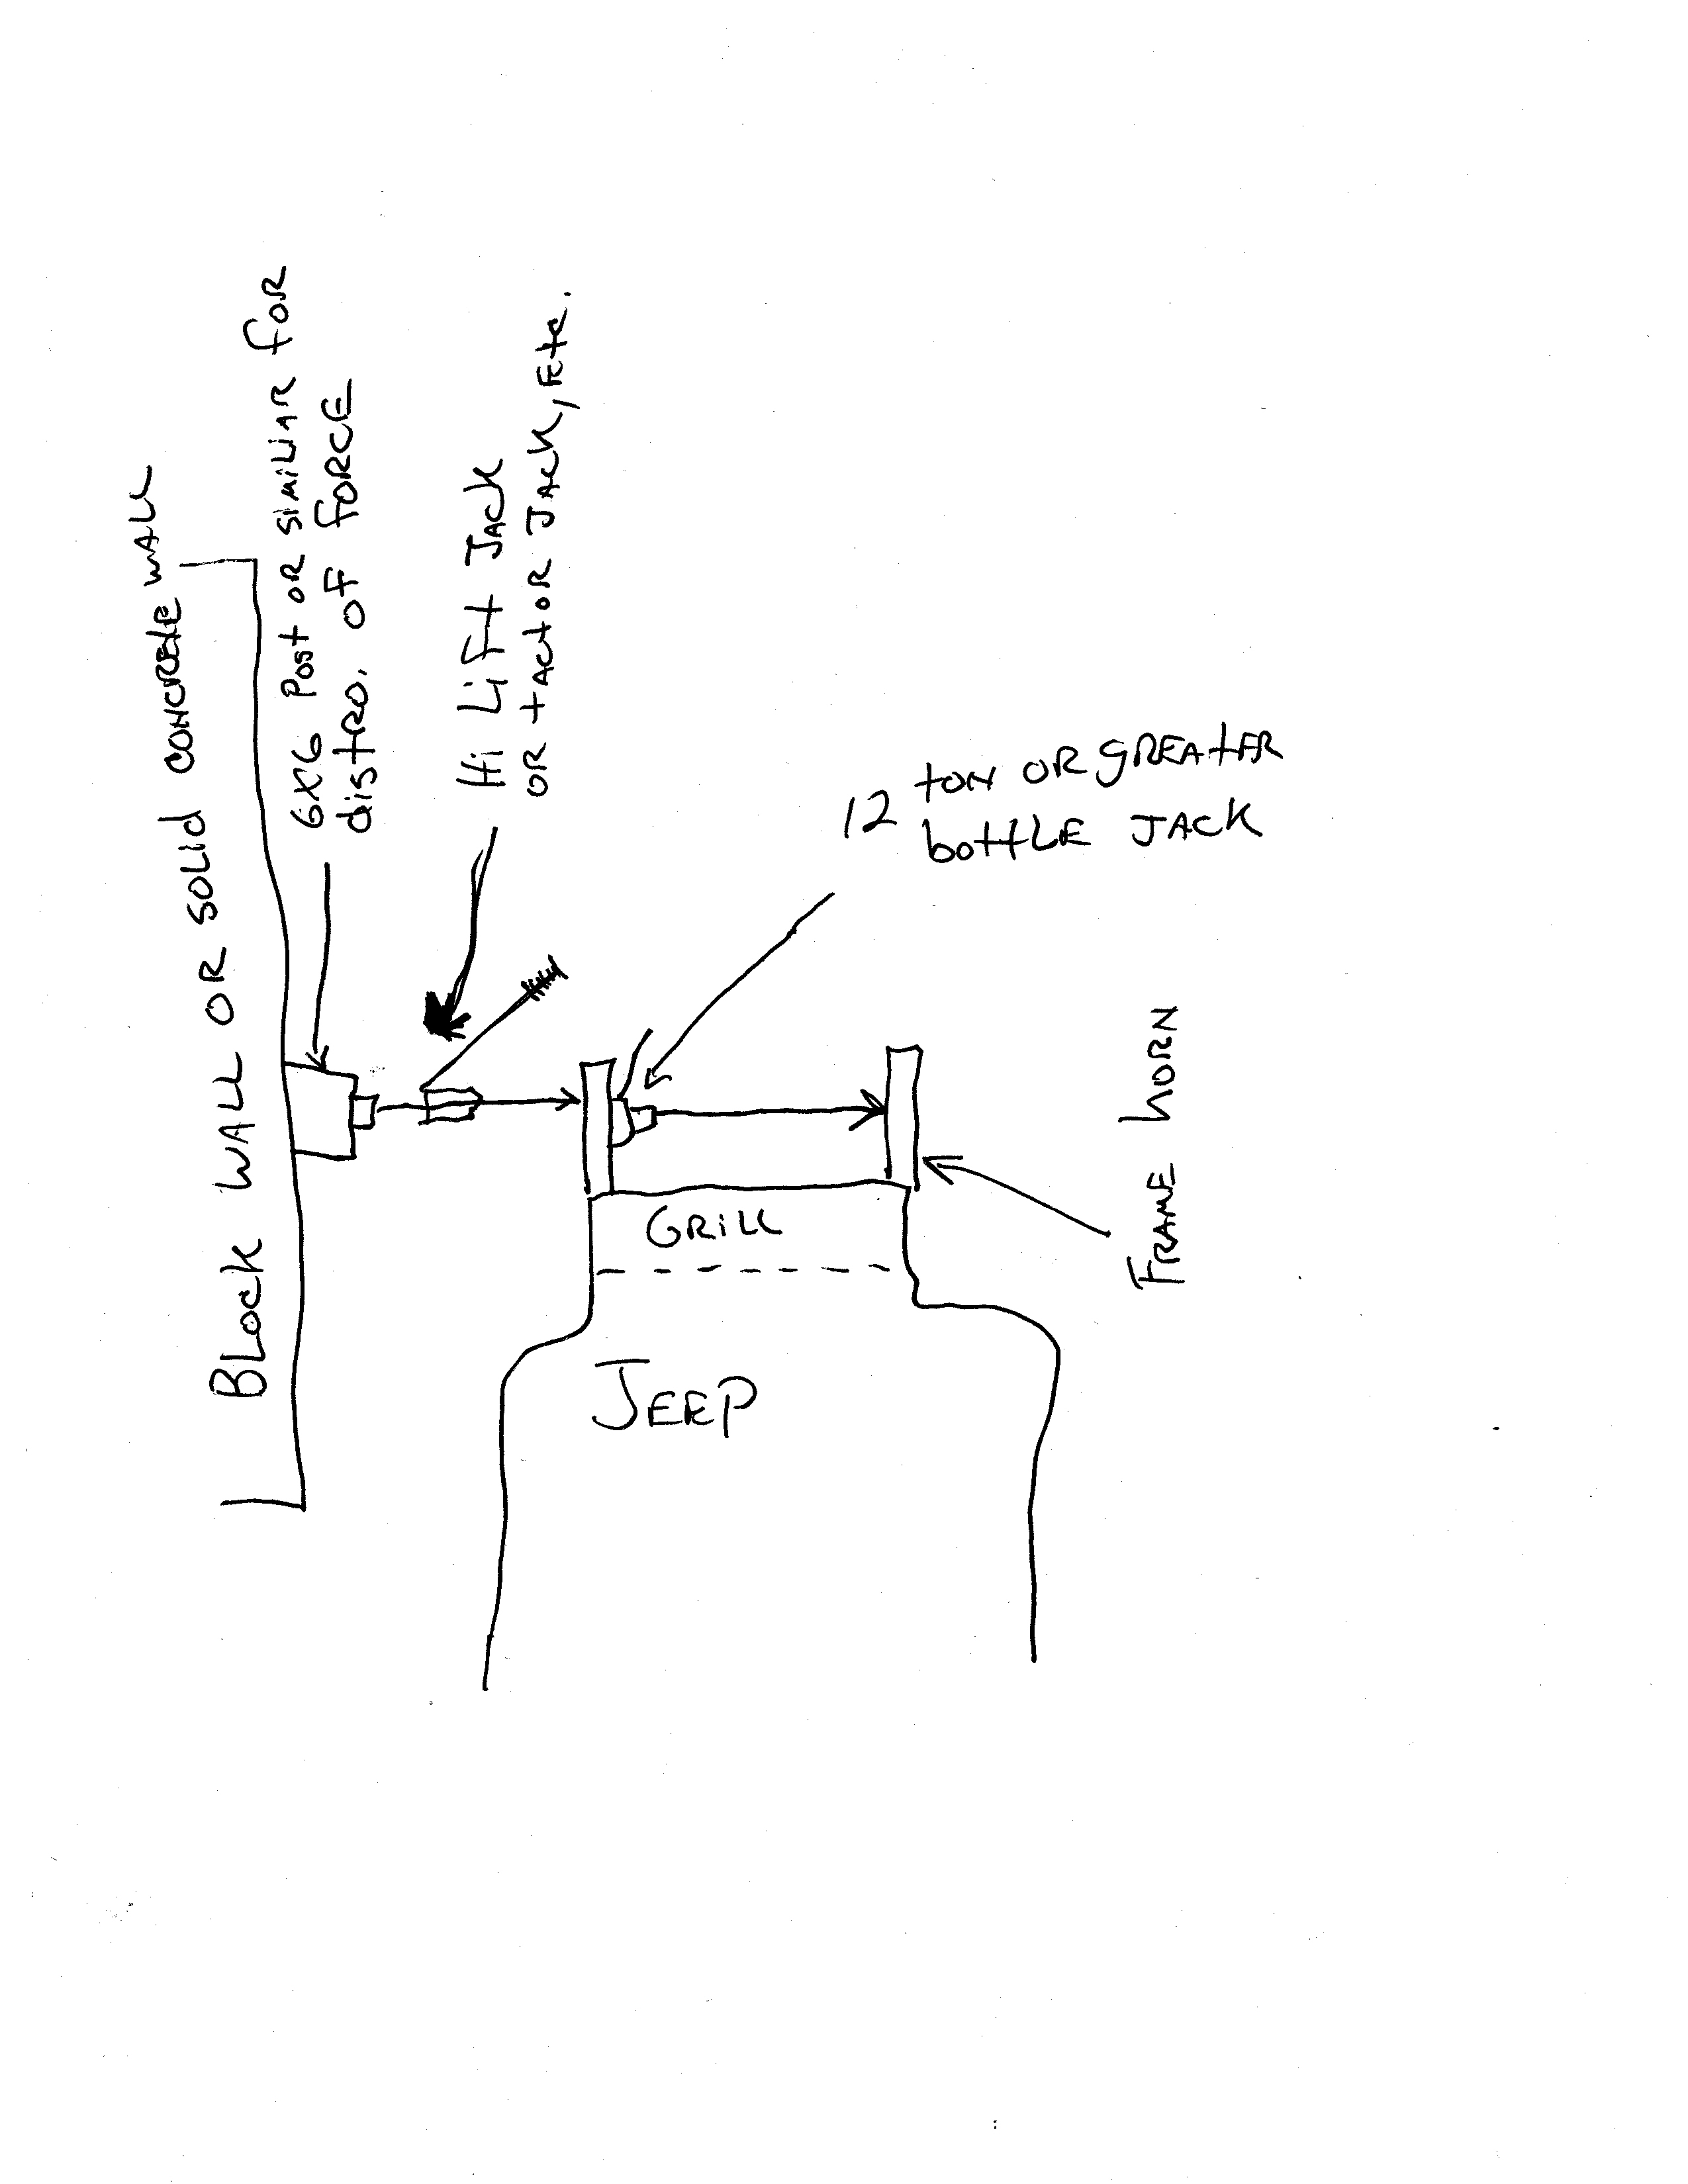 BLOCK WALL OR SOLID CONCRETE WALL
6X6 POST OR SIMILIAR FOR
DISTRO. OF FORCE
Hi LiFt JACK
OR tACtOR JACK, Etc.
12 tON OR GREATER
bottLE JACK
GRiLL
FRAME HORN
JEEP